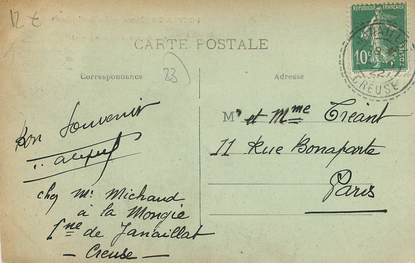 12 €
RÉPUBLIQUE FRANÇAISE
10c
CREUSE
CARTE POSTALE
Correspondance
23
Adresse
Bon Souvenir
chez Mr Michaud
à la Mongie
Cne de Janaillat
- Creuse -
Mr et Mme Tréant
11 Rue Bonaparte
Paris